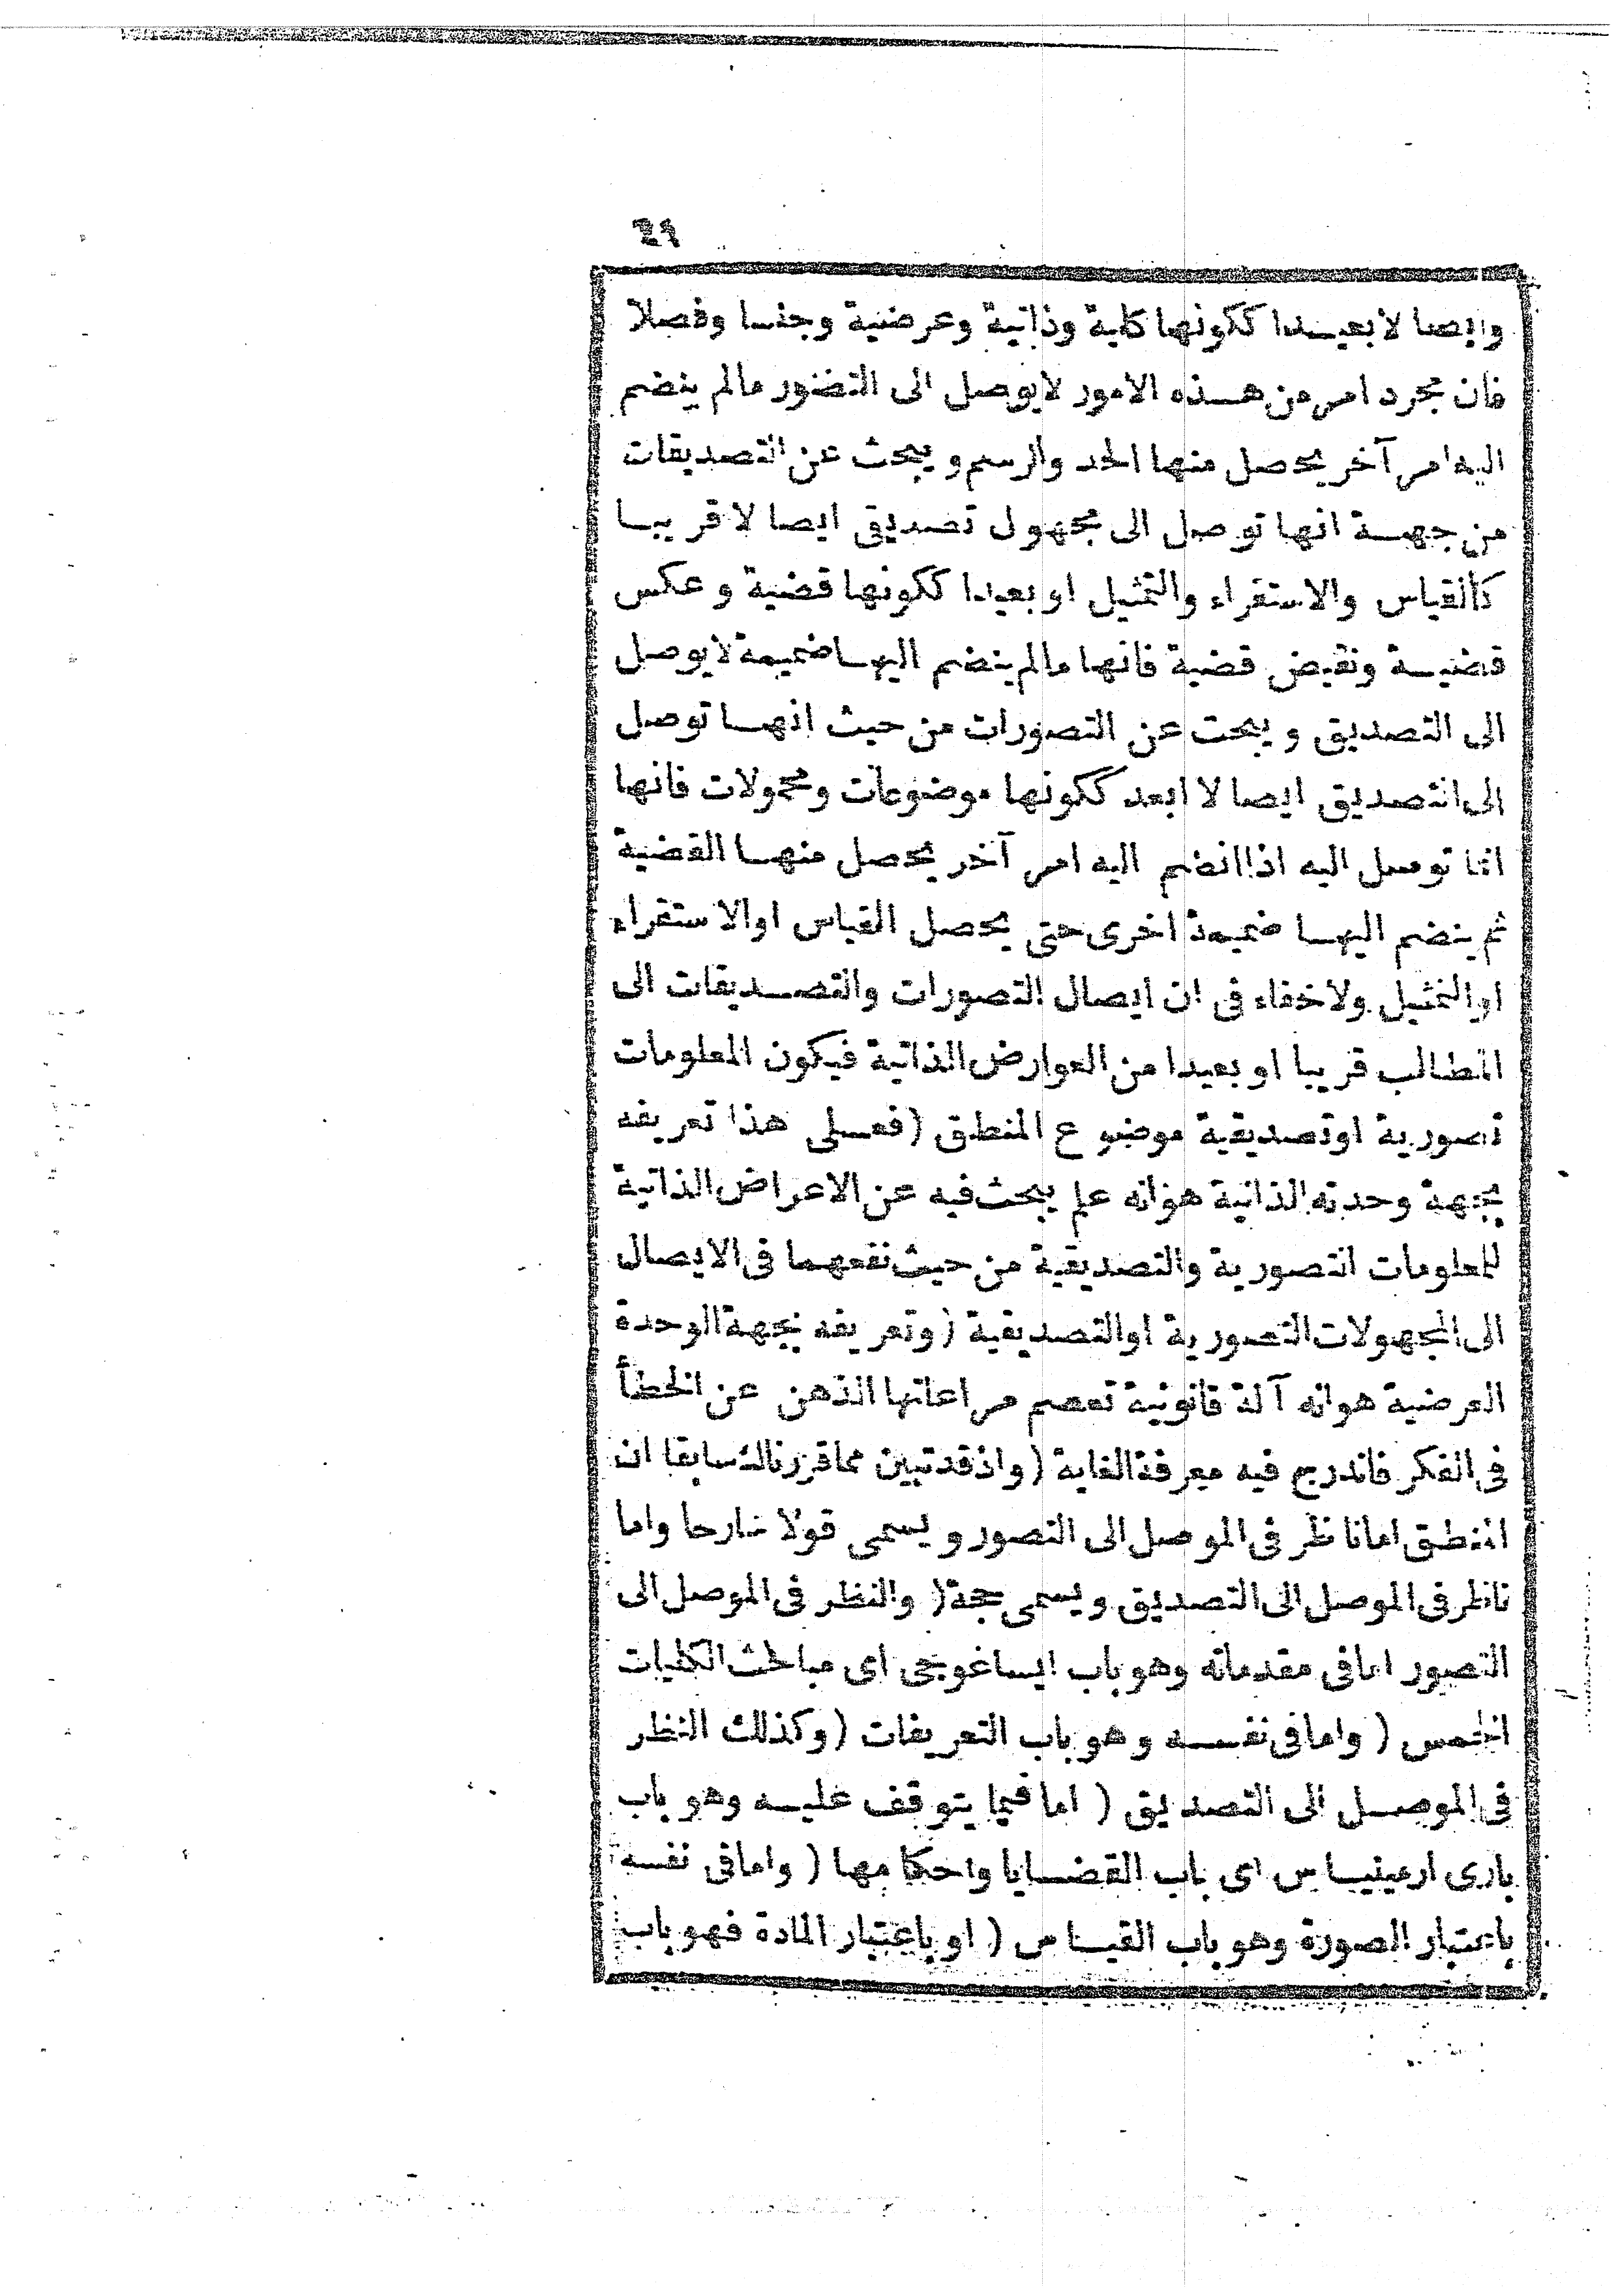 وايصا لا بعيدا ككونها كلية وذاتية وعرضية وجنسا وفصلا
فان مجرد امر من هذه الامور لا يوصل الى التصور مالم ينضم
اليه امر آخر يحصل منها الحد والرسم ويبحث عن التصديقات
من جهة انها توصل الى مجهول تصديقى ايصا لا قريبا
كالقياس والاستقراء والتمثيل او بعيدا ككونها قضية وعكس
قضية ونقيض قضية فانها مالم ينضم اليها ضميمة لا يوصل
الى التصديق ويبحث عن التصورات من حيث انها توصل
الى التصديق ايصا لا ابعد ككونها موضوعات ومحمولات فانها
انما توصل اليه اذا انضم اليه امر آخر يحصل منها القضية
ثم ينضم اليها ضميمة اخرى حتى يحصل القياس او الاستقراء
او التمثيل ولا خفاء فى ان ايصال التصورات والتصديقات الى
المطالب قريبا او بعيدا من العوارض الذاتية فيكون المعلومات
تصورية او تصديقية موضوع المنطق (فعلى هذا تعريفه
بجهة وحدته الذاتية هو انه علم يبحث فيه عن الاعراض الذاتية
للمعلومات التصورية والتصديقية من حيث نفعهما فى الايصال
الى المجهولات التصورية او التصديقية (وتعريفه بجهة الوحدة
العرضية هو انه آلة قانونية تعصم مراعاتها الذهن عن الخطأ
فى الفكر فاندرج فيه معرفة الغاية (واذ قد تبين مما قررنا لك سابقا ان
المنطق اما ناظر فى الموصل الى التصور ويسمى قولا شارحا واما
ناظر فى الموصل الى التصديق ويسمى حجة( والنظر فى الموصل الى
التصور اما فى مقدماته وهو باب ايساغوجى اى مباحث الكليات
الخمس ( واما فى نفسه وهو باب التعريفات (وكذلك النظر
فى الموصل الى التصديق ( اما فيما يتوقف عليه وهو باب
بارى ارمينياس اى باب القضايا واحكامها ( واما فى نفسه
باعتبار الصورة وهو باب القياس ( او باعتبار المادة فهو باب